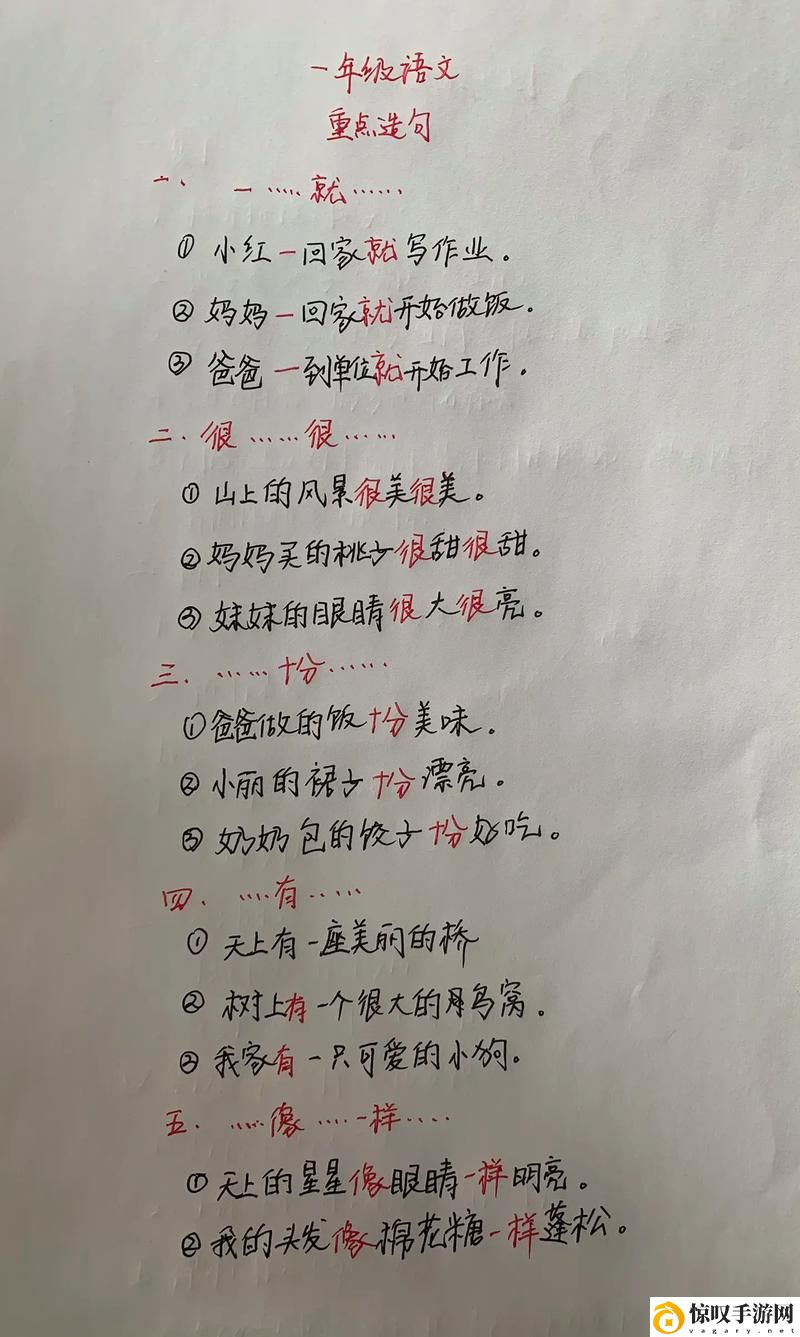 一年级语文
重点造句
一、 一……就……
① 小红一回家就写作业。
② 妈妈一回家就开始做饭。
③ 爸爸一到单位就开始工作。
二.很……很……
① 山上的风景很美很美。
② 妈妈买的桃子很甜很甜。
③ 妹妹的眼睛很大很亮。
三. ……十分……
① 爸爸做的饭十分美味。
② 小丽的裙子十分漂亮。
③ 奶奶包的饺子十分好吃。
四. ……有……
① 天上有一座美丽的桥
② 树上有一个很大的鸟窝。
③ 我家有一只可爱的小狗。
五. ……像……一样……
① 天上的星星像眼睛一样明亮。
② 我的头发像棉花糖一样蓬松。
惊叹手游网
vagary.net